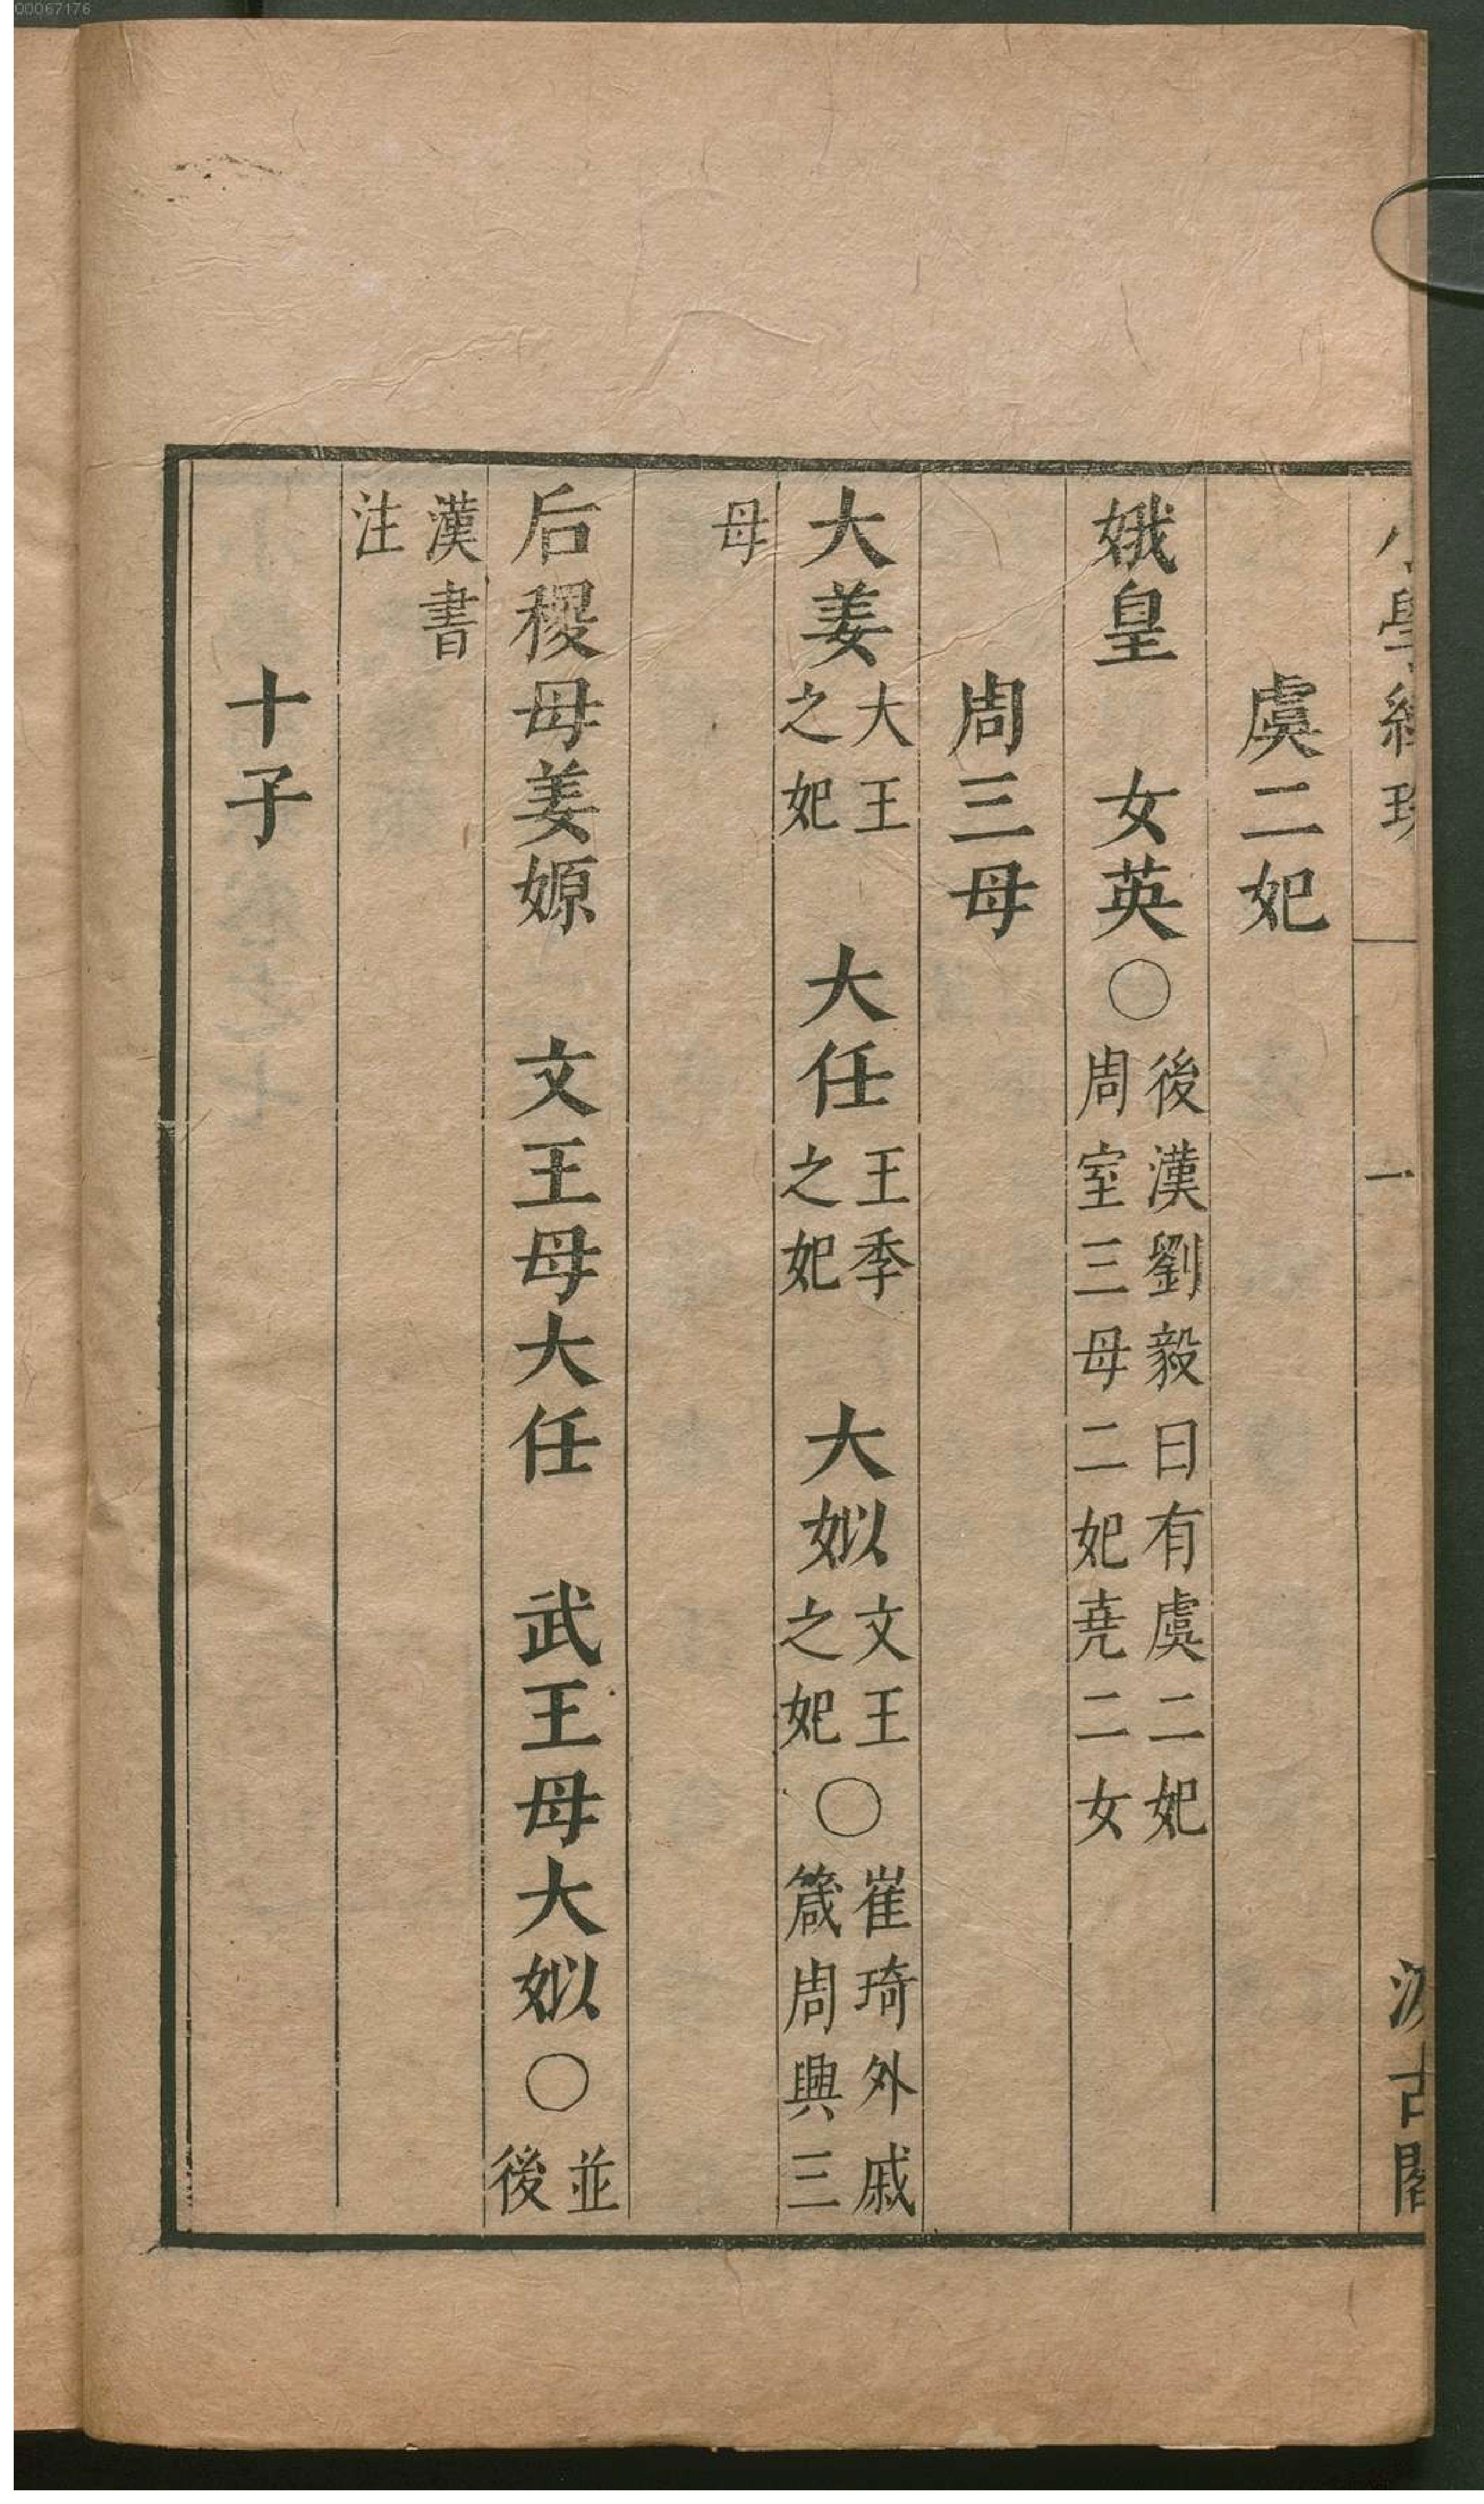 00067176
虞二妃
娥皇　女英○後漢劉毅曰有虞二妃
周室三母二妃堯二女
周三母
大姜大王之妃　大任王季之妃　大姒文王之妃○崔琦外戚箴周興三
母
后稷母姜嫄　文王母大任　武王母大姒○並後
漢書
注
十子
一
古